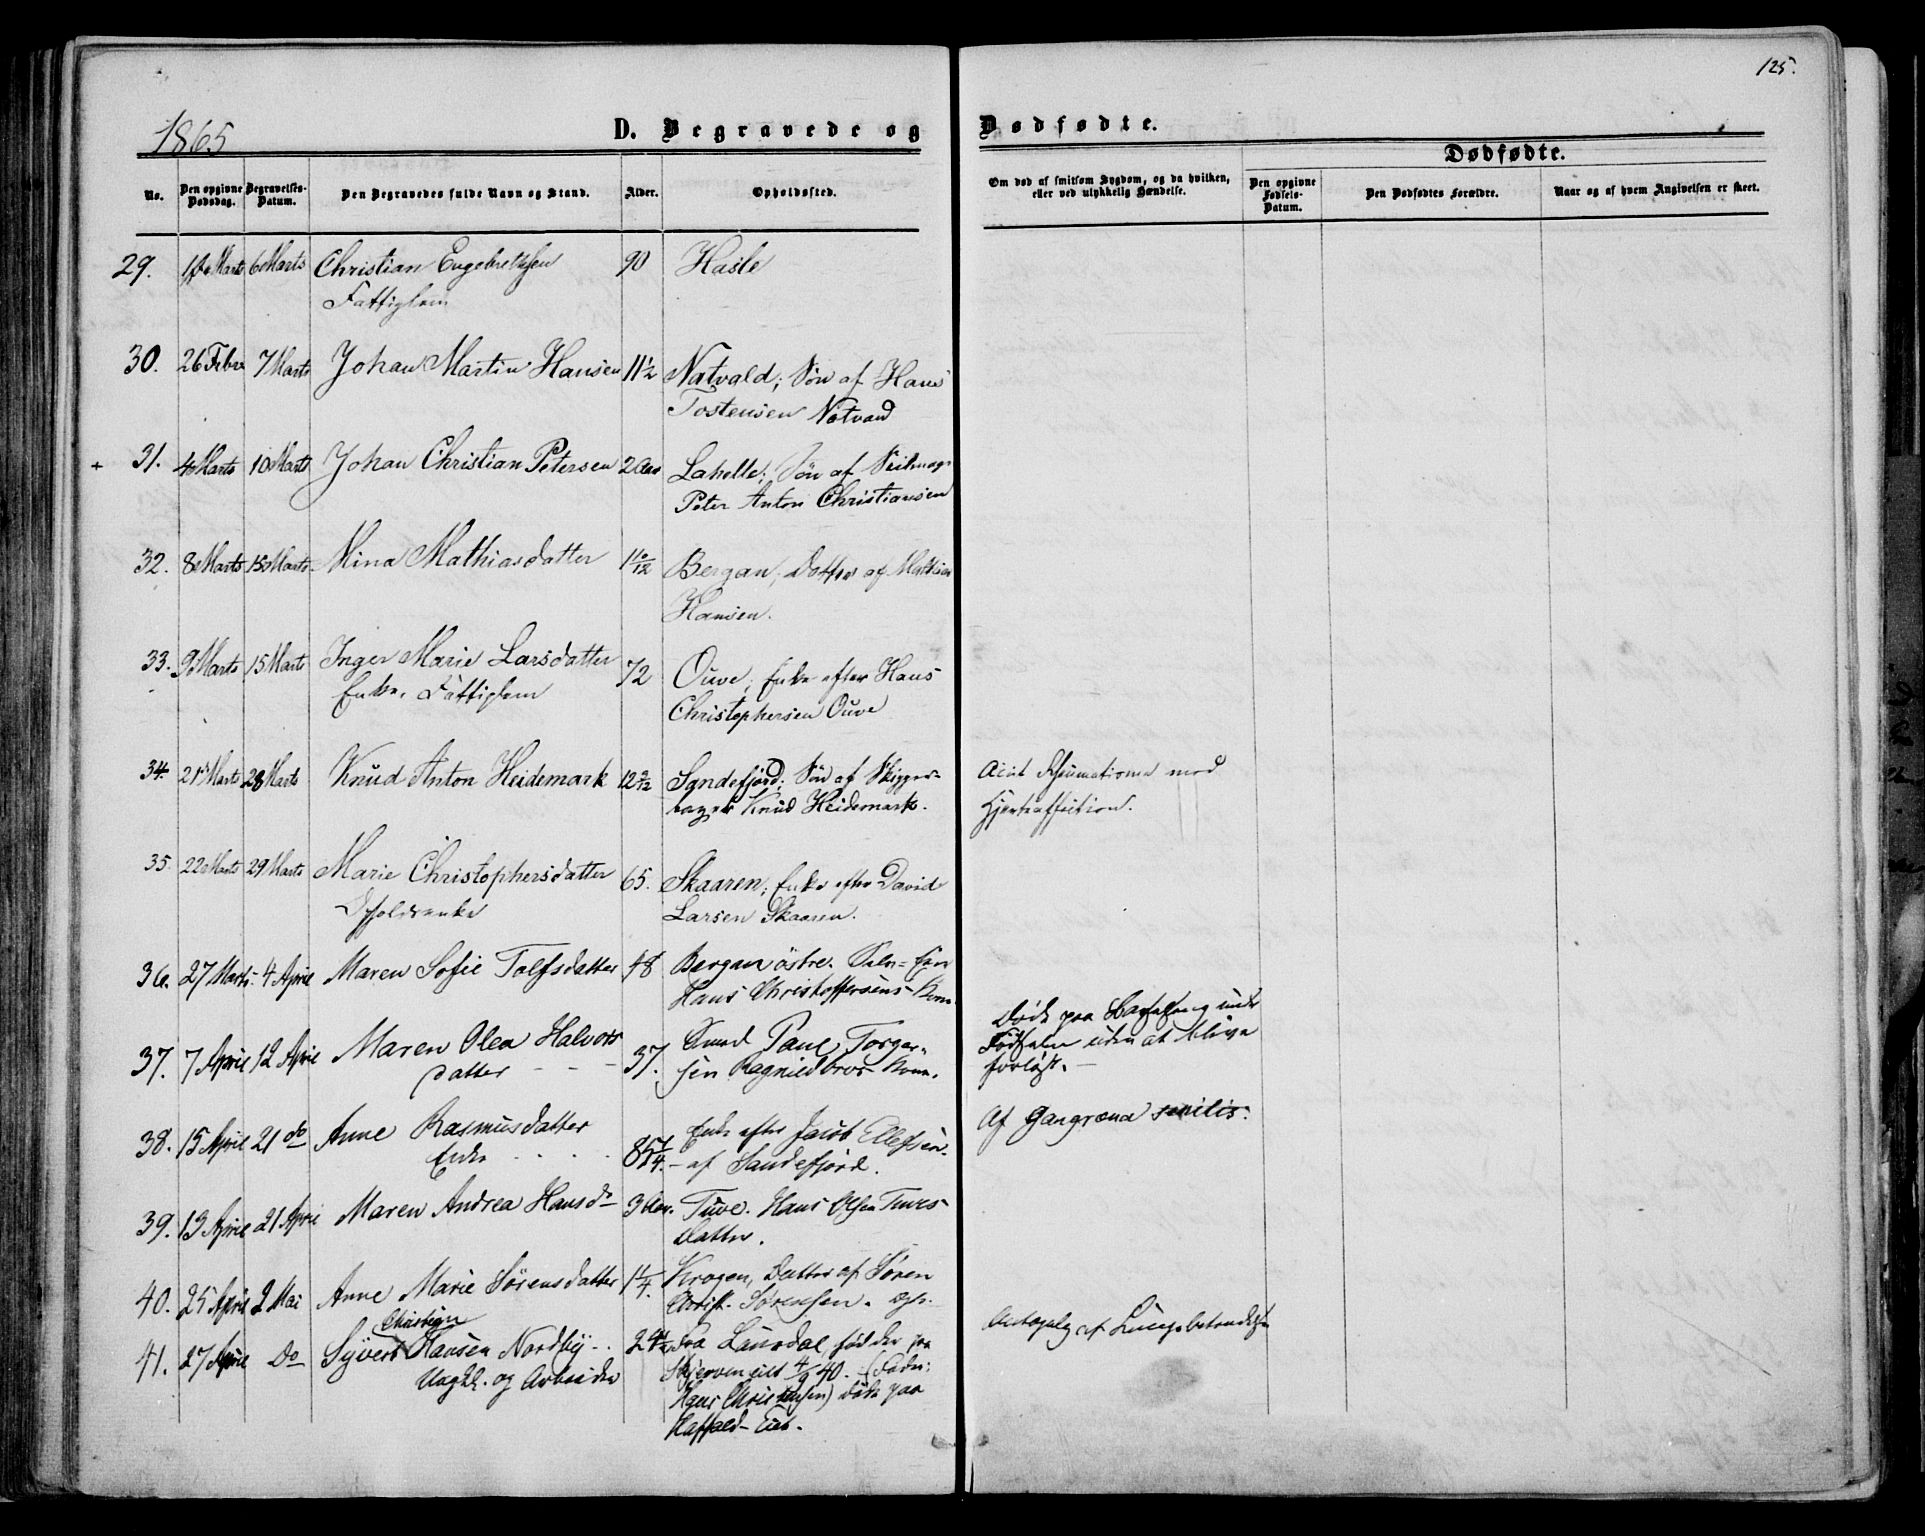 125.
1865
D. Begravede og Dødfødte.
Dødfødte.
No.
Den opgivne Dødsdag.
Begravelses-Datum.
Den Begravedes fulde Navn og Stand.
Alder.
Opholdssted.
Om død af smitsom Sygdom, og da hvilken,
eller ved ulykkelig Hændelse.
Den opgivne Fødsels-Datum.
Den Dødfødtes Forældre.
Naar og af hvem Angivelsen er skeet.
29. 1ste Marts 6 Marts Christian Engebrethsen 90 Hasle
Fattiglem
30. 26 Febr 7 Marts Johan Martin Hansen 11½ Natvald; Søn af Hans
Tostensen Natvad
+ 31. 4 Marts 10 Marts Johan Christian Petersen 2 Aar Lahelle; Søn af
Peter Anton Christiansen
32. 8 Marts 15 Marts Mina Mathiasdatter 1 10/12 Bergan; Datter af Mathias
Hansen.
33. 9 Marts 15 Marts Inger Marie Larsdatter 72 Ouve; Enke efter Hans
Enke, Fattiglem Christophersen Ouve
34. 21 Marts 28 Marts Knud Anton Heidemark 12 Sandefjord; Søn af Skipper
Knud Heidemark.
Acut Rheumatisme med
Hjerteaffection.
35. 22 Marts 29 Marts Marie Christophersdatter 65. Skaaren; Enke efter David
Larsen Skaaren.
36. 27 Marts 4 April Maren Sofie Tolfsdatter 48 Bergan østre.
Hans Christoffersens Kone
37. 7 April 12 April Maren Olea Halvors 37. Paul Torger-
datter - - sen Ragnildbros Kone.
Døde paa Barselseng under
Fødselen uden at blive
forløst. -
38. 15 April 21 do Anne Rasmusdatter 85 Enke efter Jacob Ellefsen
Enke - af Sandefjord.
Af Gangræna senilis.
39. 13 April 21 April Maren Andrea Hansd 3 Aar. Tuve. Hans Olsen Tuves
Datter.
40. 25 April 2 Mai Anne Marie Sørensdatter 1¼ Krogen, Datter af Søren
Christ. Sørensen.
Christian
41. 27 April Do Syvert Hansen Nordby 24½ Fra Laurdal, født der paa
Ungk. og Arbeider 4/9 40. (Fader:
Hans Christensen) døde paa
-Eie.
Antagelig af Lungebetændelse